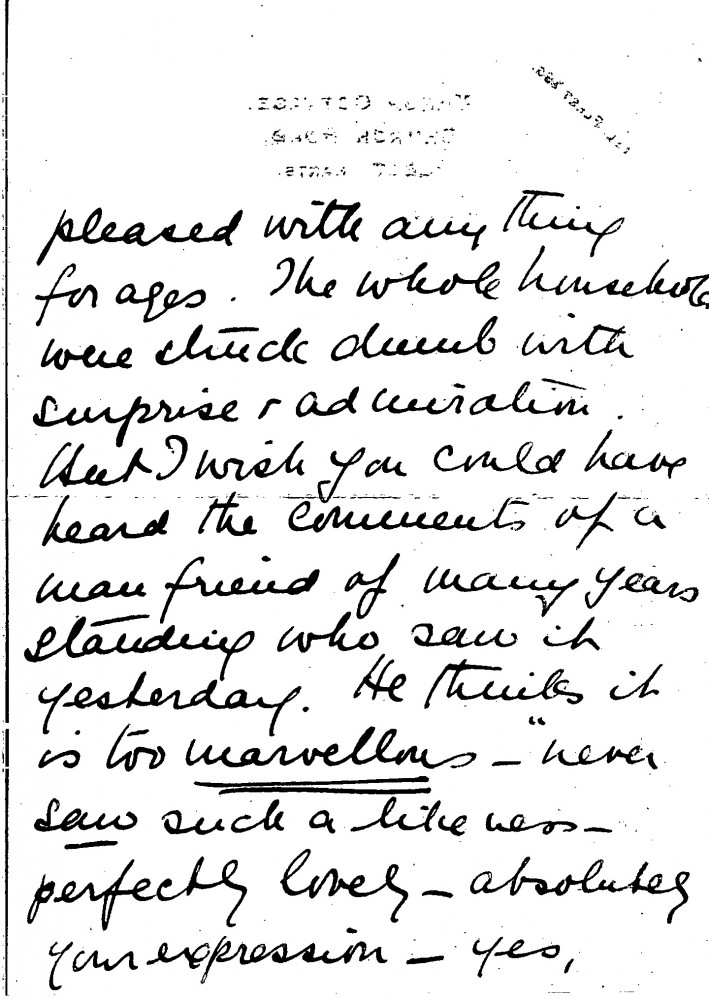 pleased with any thing
for ages. The whole household
were struck dumb with
surprise & admiration.
But I wish you could have
heard the comments of a
man friend of many years
standing who saw it
yesterday. He thinks it
is too marvellous – "never
saw such a likeness –
perfectly lovely – absolutely
your expression – yes,